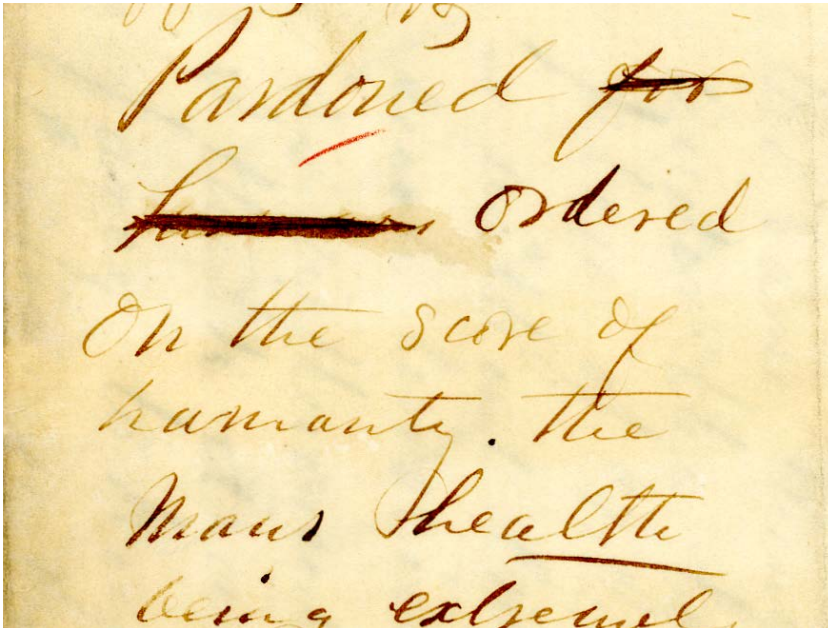 Pardoned for
ordered
On the score of
humanty. the
Mans health
being extremel